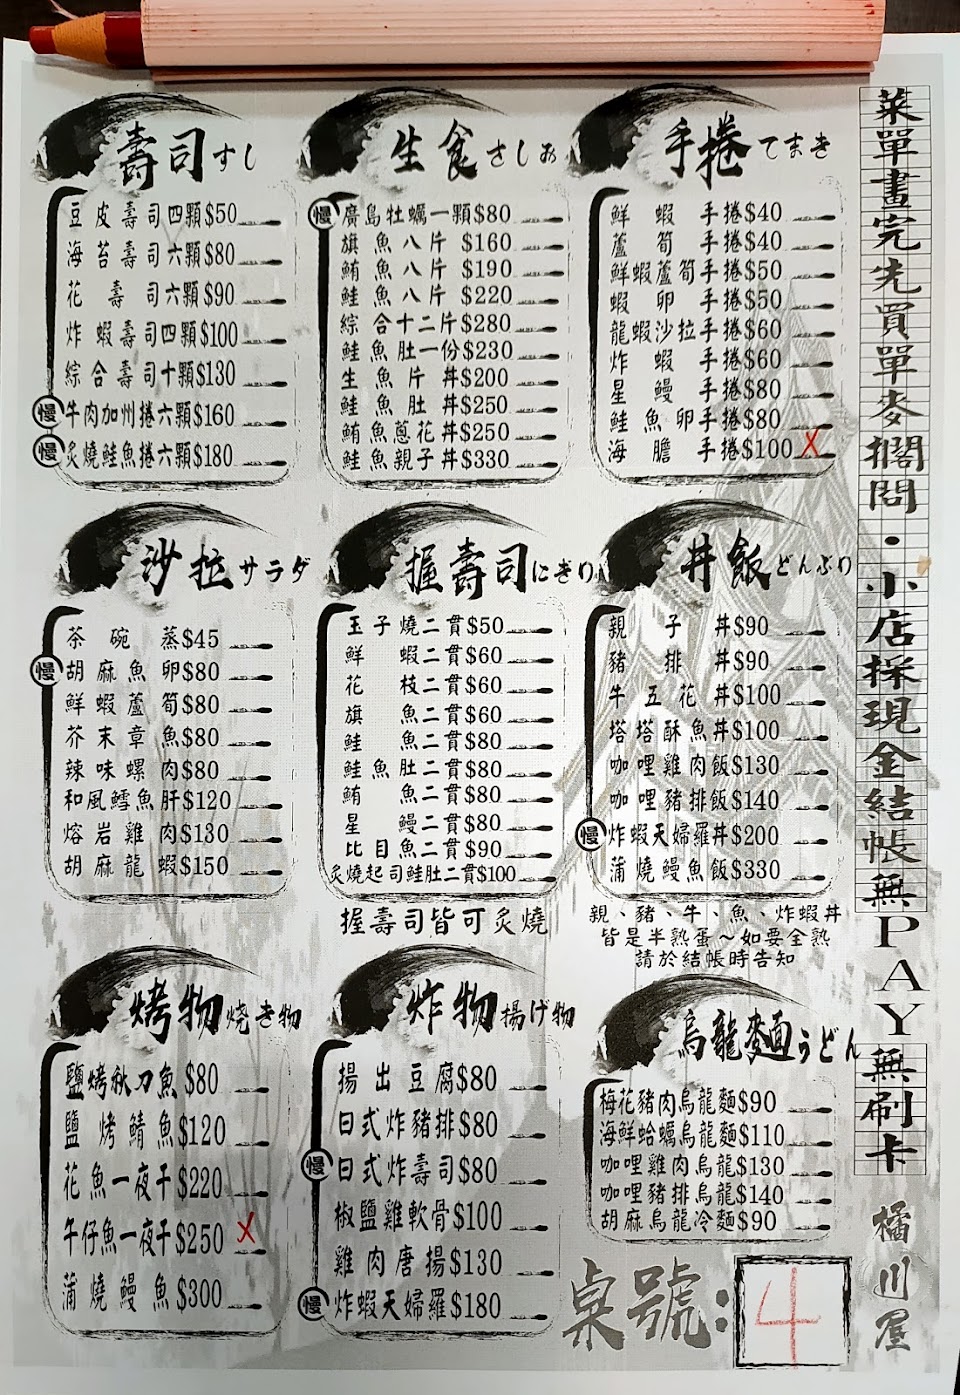 壽司すし
豆皮壽司四顆$50
海苔壽司六顆$80
花壽司六顆$90
炸蝦壽司四顆$100
綜合壽司十顆$130
慢 牛肉加州捲六顆$160
慢 炙燒鮭魚捲六顆$180
生食さしみ
慢 廣島牡蠣一顆$80
旗魚八片$160
鮪魚八片$190
鮭魚八片$220
綜合十二片$280
鮭魚肚一份$230
生魚片丼$200
鮭魚肚丼$250
鮪魚蔥花丼$250
鮭魚親子丼$330
手捲てまき
鮮蝦手捲$40
蘆筍手捲$40
鮮蝦蘆筍手捲$50
蝦卵手捲$50
龍蝦沙拉手捲$60
炸蝦手捲$60
星鰻手捲$80
鮭魚卵手捲$80
海膽手捲$100 X
沙拉サラダ
茶碗蒸$45
慢 胡麻魚卵$80
鮮蝦蘆筍$80
芥末章魚$80
辣味螺肉$80
和風鱈魚肝$120
熔岩雞肉$130
胡麻龍蝦$150
握壽司にぎり
玉子燒二貫$50
鮮蝦二貫$60
花枝二貫$60
旗魚二貫$60
鮭魚二貫$80
鮭魚肚二貫$80
鮪魚二貫$80
星鰻二貫$80
比目魚二貫$90
炙燒起司鮭肚二貫$100
握壽司皆可炙燒
丼飯どんぶり
親子丼$90
豬排丼$90
牛五花丼$100
塔塔酥魚丼$100
咖哩雞肉飯$130
咖哩豬排飯$140
慢 炸蝦天婦羅丼$200
蒲燒鰻魚飯$330
親、豬、牛、魚、炸蝦丼
皆是半熟蛋～如要全熟
請於結帳時告知
烤物焼き物
鹽烤秋刀魚$80
鹽烤鯖魚$120
花魚一夜干$220
午仔魚一夜干$250 X
蒲燒鰻魚$300
炸物揚げ物
揚出豆腐$80
日式炸豬排$80
慢 日式炸壽司$80
椒鹽雞軟骨$100
雞肉唐揚$130
慢 炸蝦天婦羅$180
烏龍麵うどん
梅花豬肉烏龍麵$90
海鮮蛤蠣烏龍麵$110
咖哩雞肉烏龍$130
咖哩豬排烏龍$140
胡麻烏龍冷麵$90
桌號:4
菜單畫完先買單麥擱問・小店採現金結帳無PAY無刷卡
橘川屋